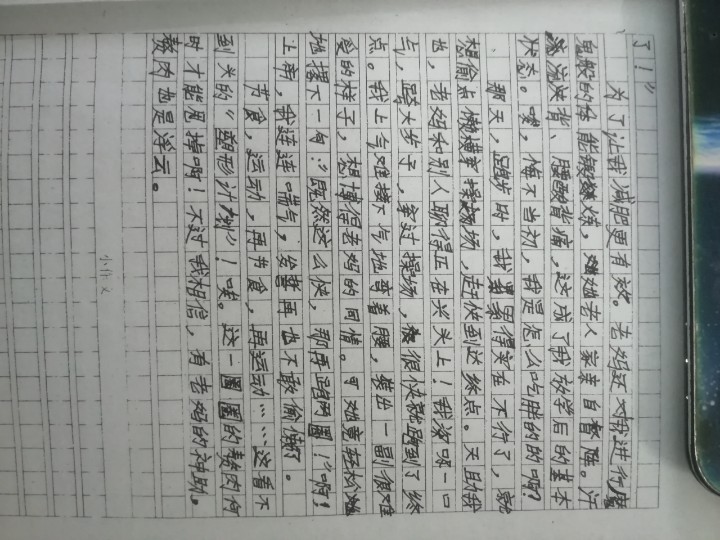 了！"
为了让我减肥更有效。老妈还对我进行魔
鬼般的体能锻炼，她老人家亲自督阵。汗
流浃背、腰酸背痛，这成了我放学后的基本
状态。唉，悔不当初，我是怎么吃胖的的啊？
那天，跑步时，我累得实在不行了，就
想偷点懒横穿操场，赶快到达终点。天助我
也，老妈和别人聊得正在兴头上！我深吸一口
气，踏大步子，穿过操场，很快就跑到了终
点。我上气难接下气地弯着腰，装出一副很难
受的样子，想博得老妈的同情。可她竟轻松
地撂下一句："既然这么快，那再跑两圈！"啊！
上帝，我连连喘气，发誓再也不敢偷懒了。
节食，运动，再节食，再运动……这看不
到头的"塑形计划"！唉。这一圈圈的赘肉何
时才能甩掉啊！不过我相信，有老妈的神助。
赘肉也是浮云。
小作文